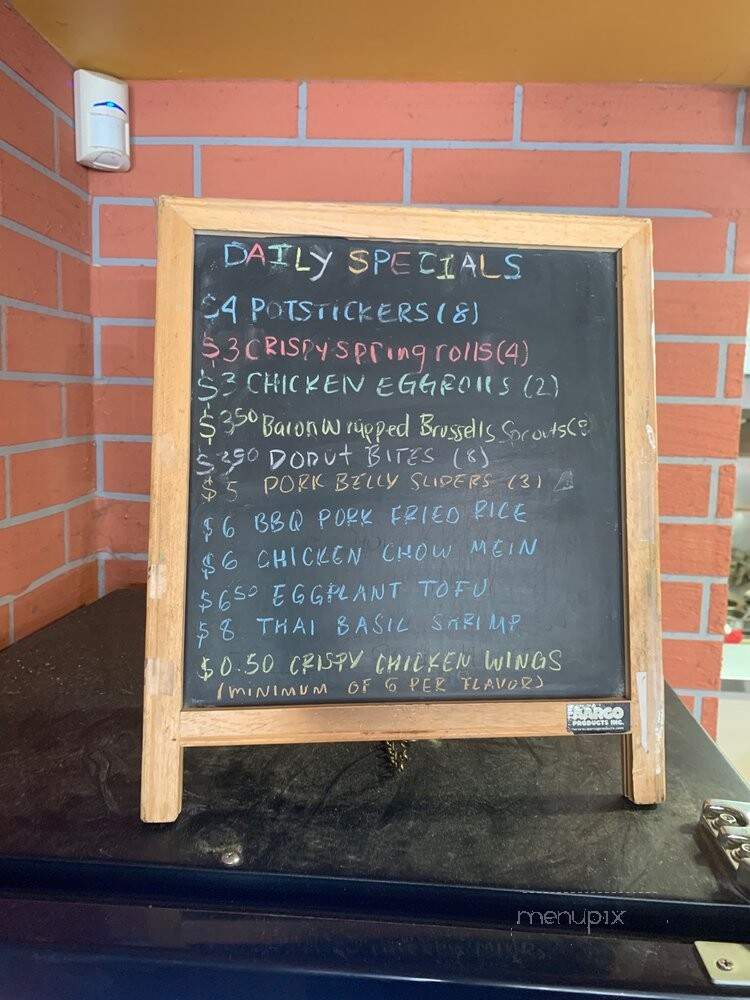 DAILY SPECIALS
$4 POTSTICKERS (8)
$3 CRISPY spring rolls (4)
$3 CHICKEN EGGROLLS (2)
$3.50 Bacon wrapped Brussells Sprouts
$3.50 DONUT BITES (8)
$5 PORK BELLY SLIDERS (3)
$6 BBQ PORK FRIED RICE
$6 CHICKEN CHOW MEIN
$6.50 EGGPLANT TOFU
$8 THAI BASIL SHRIMP
$0.50 CRISPY CHICKEN WINGS
(MINIMUM OF 6 PER FLAVOR)
AARCO
PRODUCTS INC.
menupix